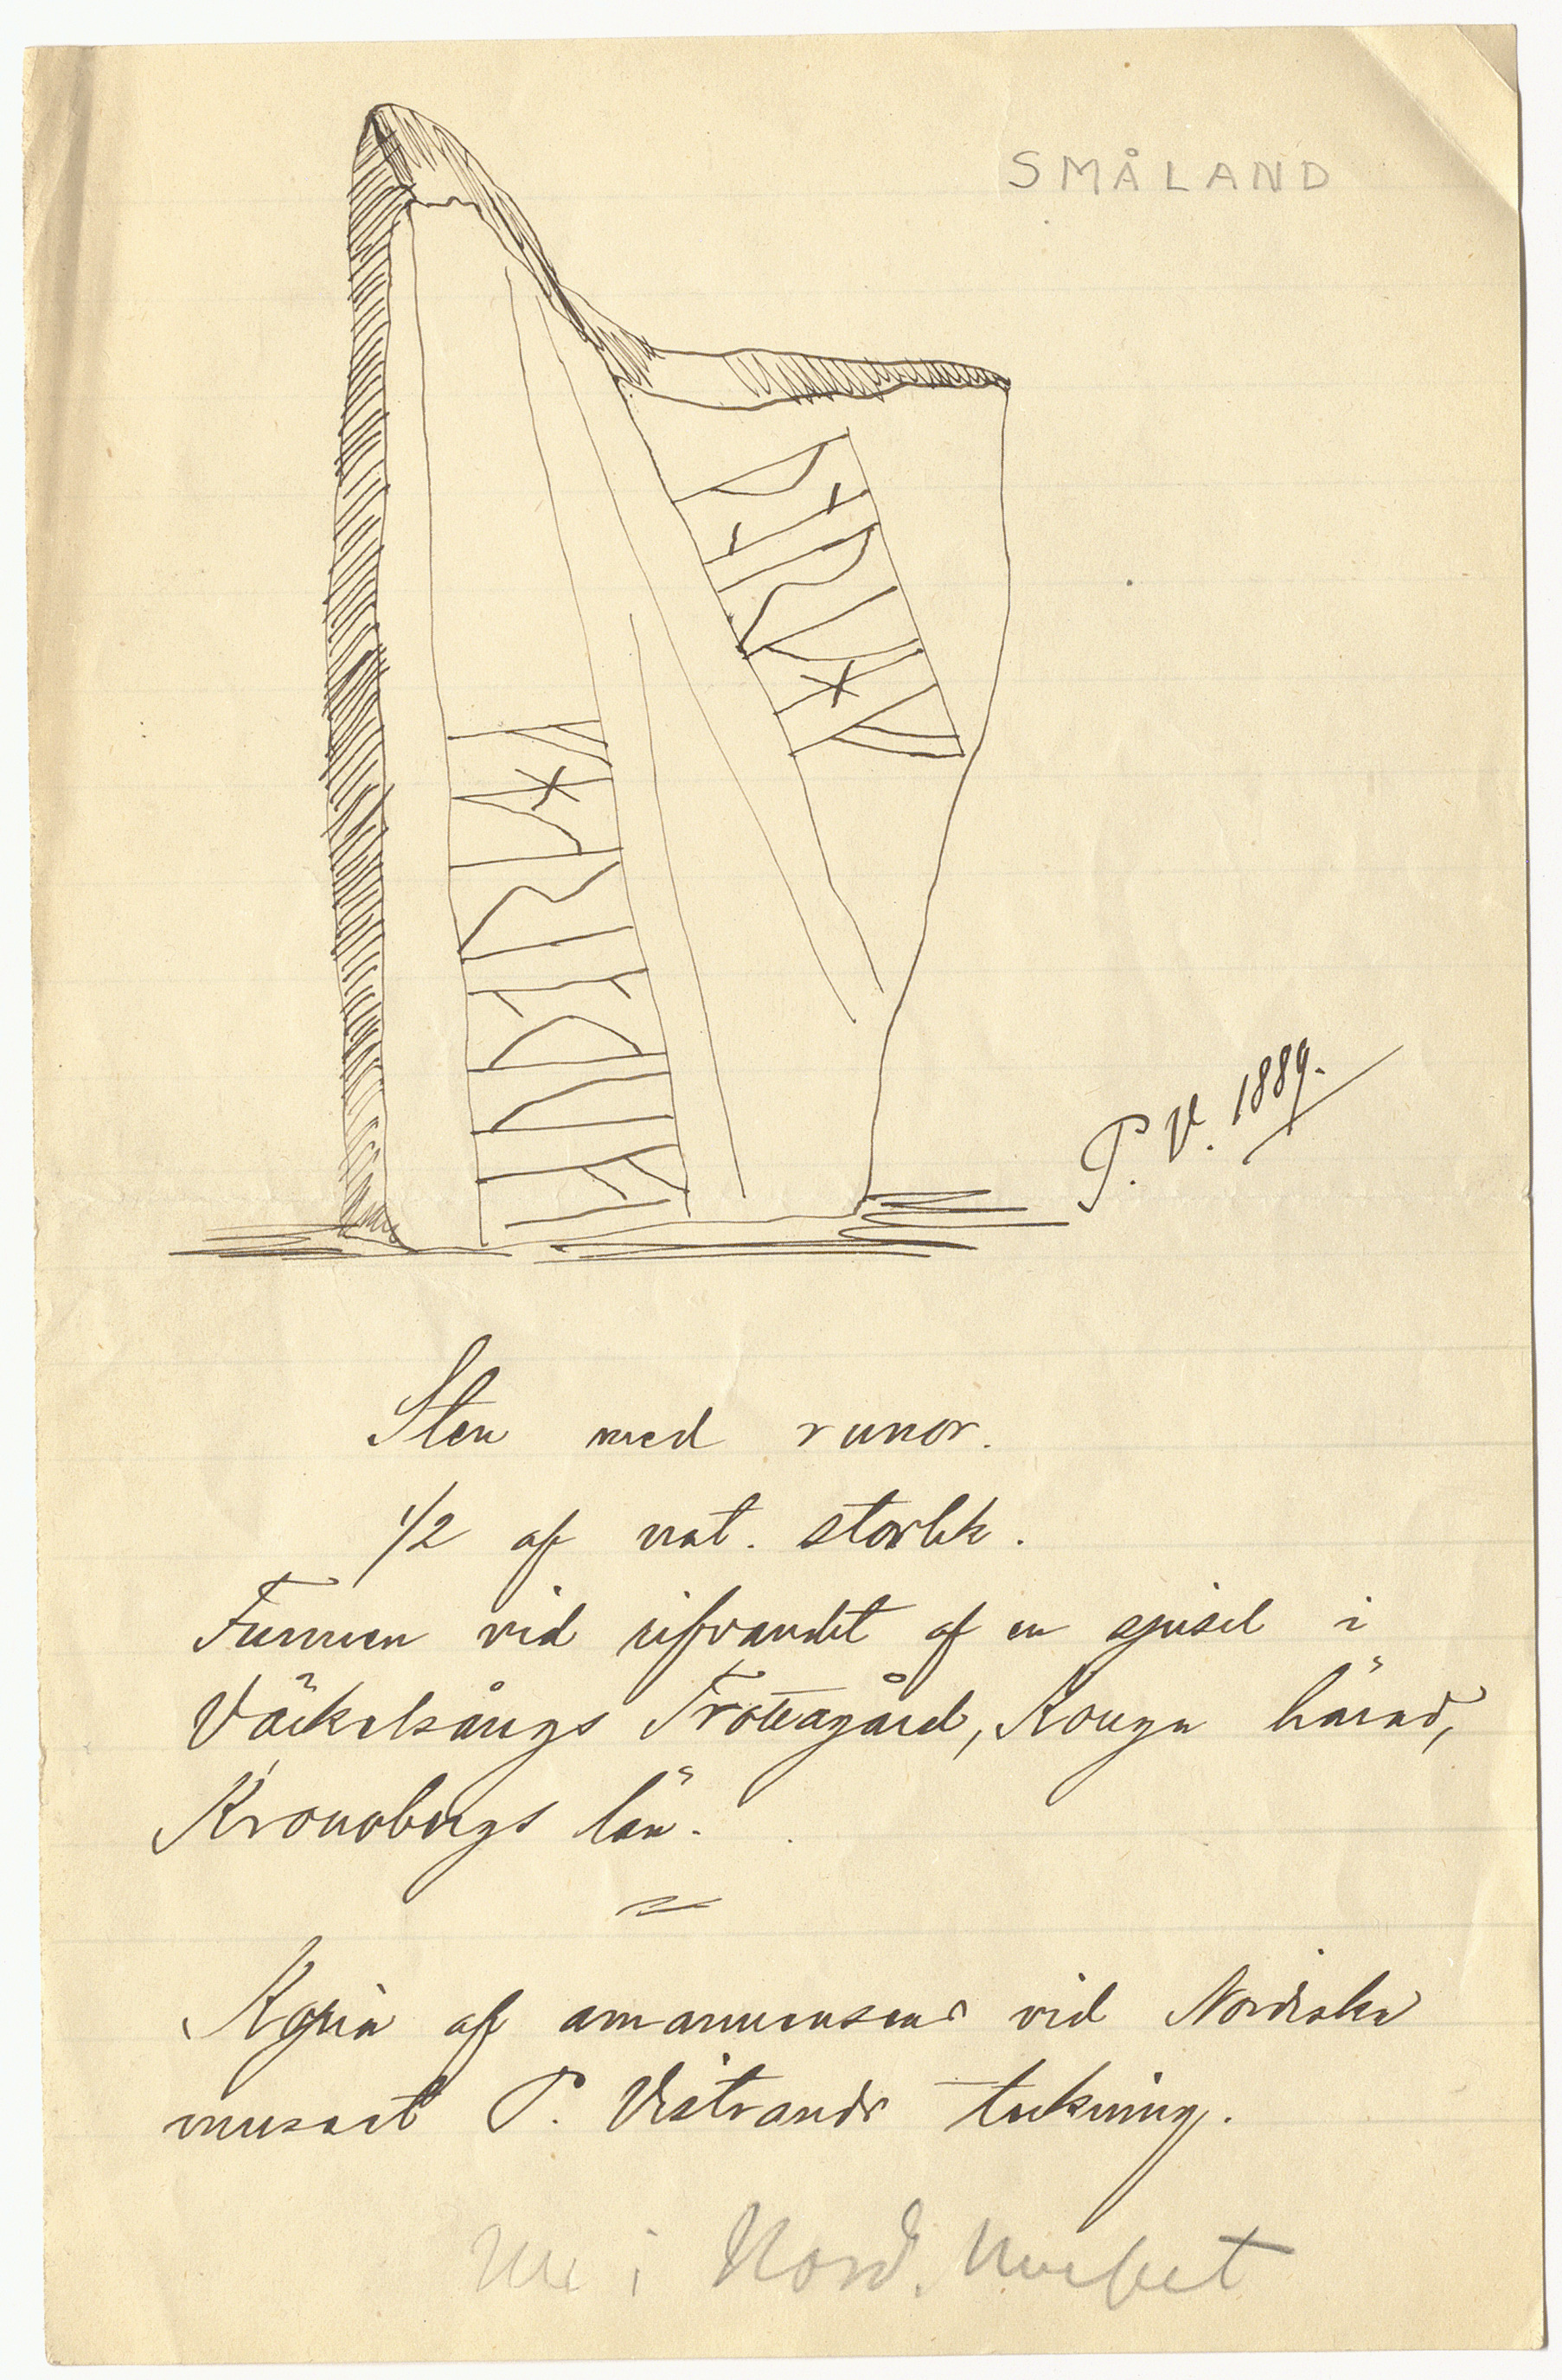 SMÅLAND
P. V. 1889.
Sten med runor.
1/2 af nat. storlek.
Funnen vid rifvandet af en spisel i
Väckelsångs Trottagård, Konga härad,
Kronobergs län.
Kopia af amanuensens vid Nordiska
museet P. Vistrands teckning.
Nu i Nord. Museet